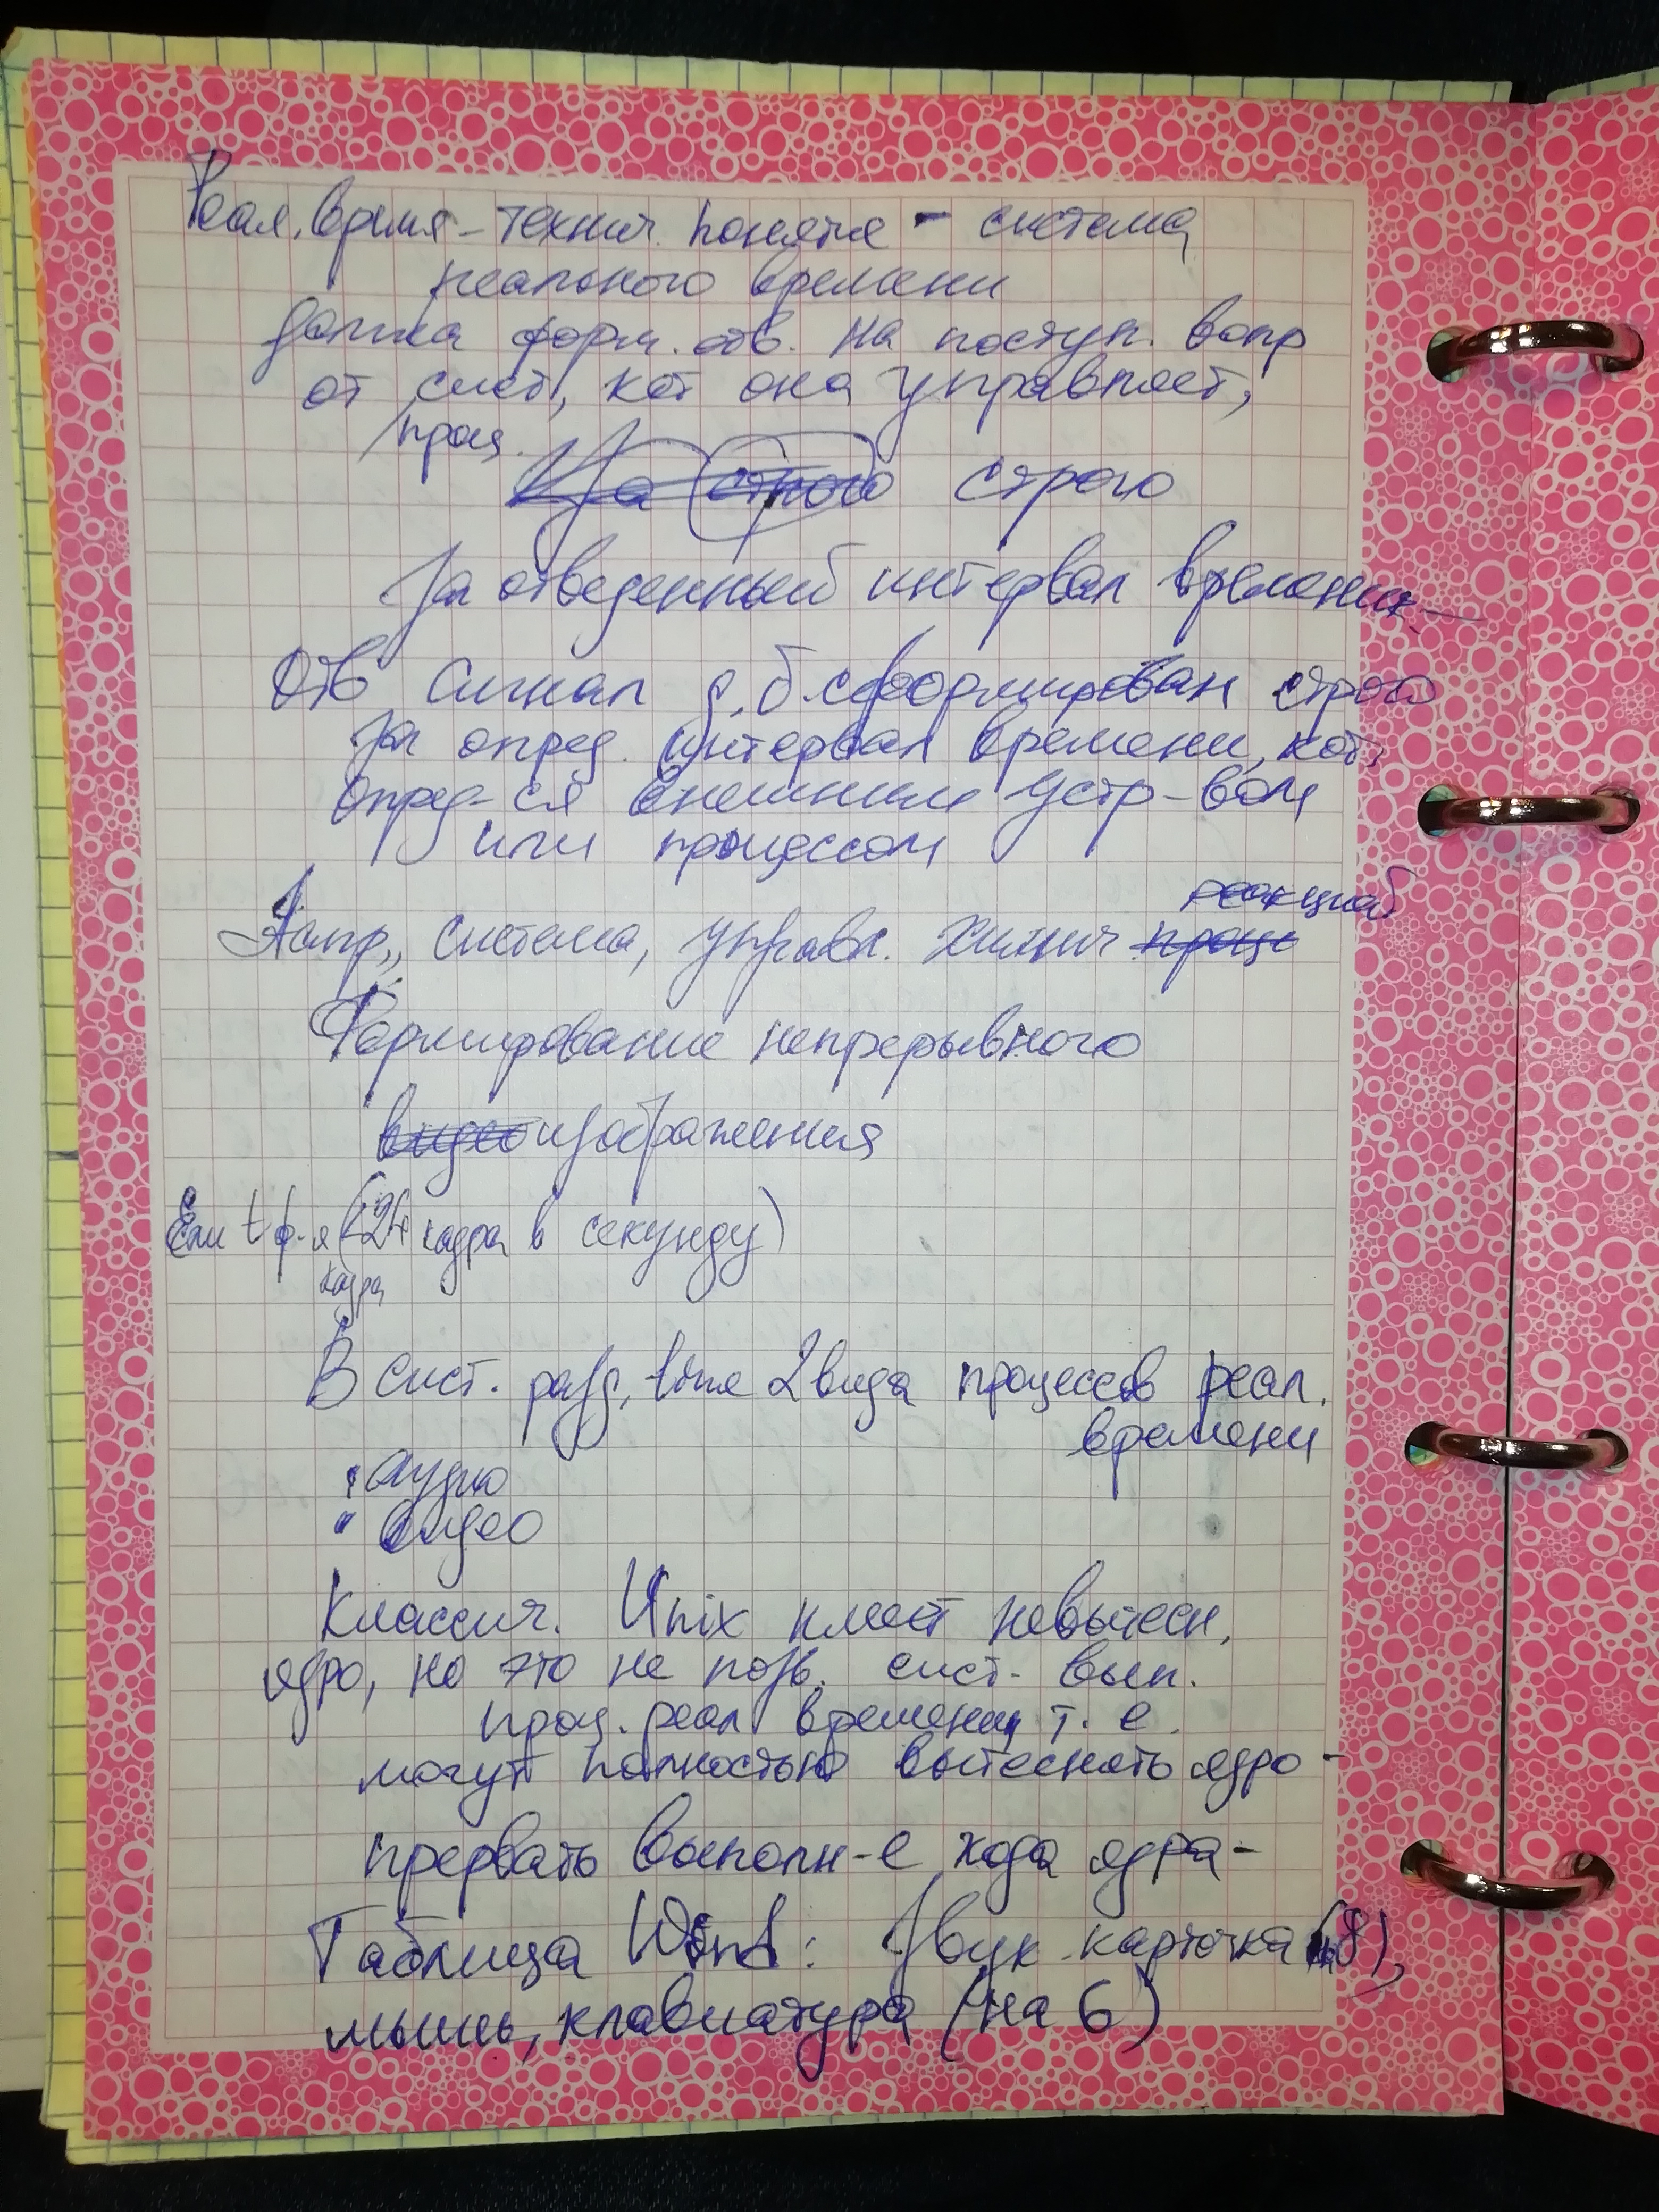 Реал. время – технич. понятие – система
реального времени
должна форм. отв. на поступ. вопр
от сист, кот она управляет,
/проц.
За строго строго
за отведенный интервал времени –
Отв сигнал д.б. сформирован строго
за опред. интервал времени, кот.
опред-ся внешним устр-вом
или процессом
реакцией
Напр., система, управл. химич проц
Формирование непрерывного
видео изображения
Если t ф-я (<24 кадра в секунду)
кадра
В сист. разд. time 2 вида процессов реал.
времени
• аудио
• видео
Классич. Unix имеет невытесн.
ядро, но это не позв. сист. вып.
проц. реал времени, т.е.
могут полностью вытеснять ядро –
прервать выполн-е хода ядра –
Таблица Wind: Звук карточка (на 8),
мышь, клавиатура (на 6)